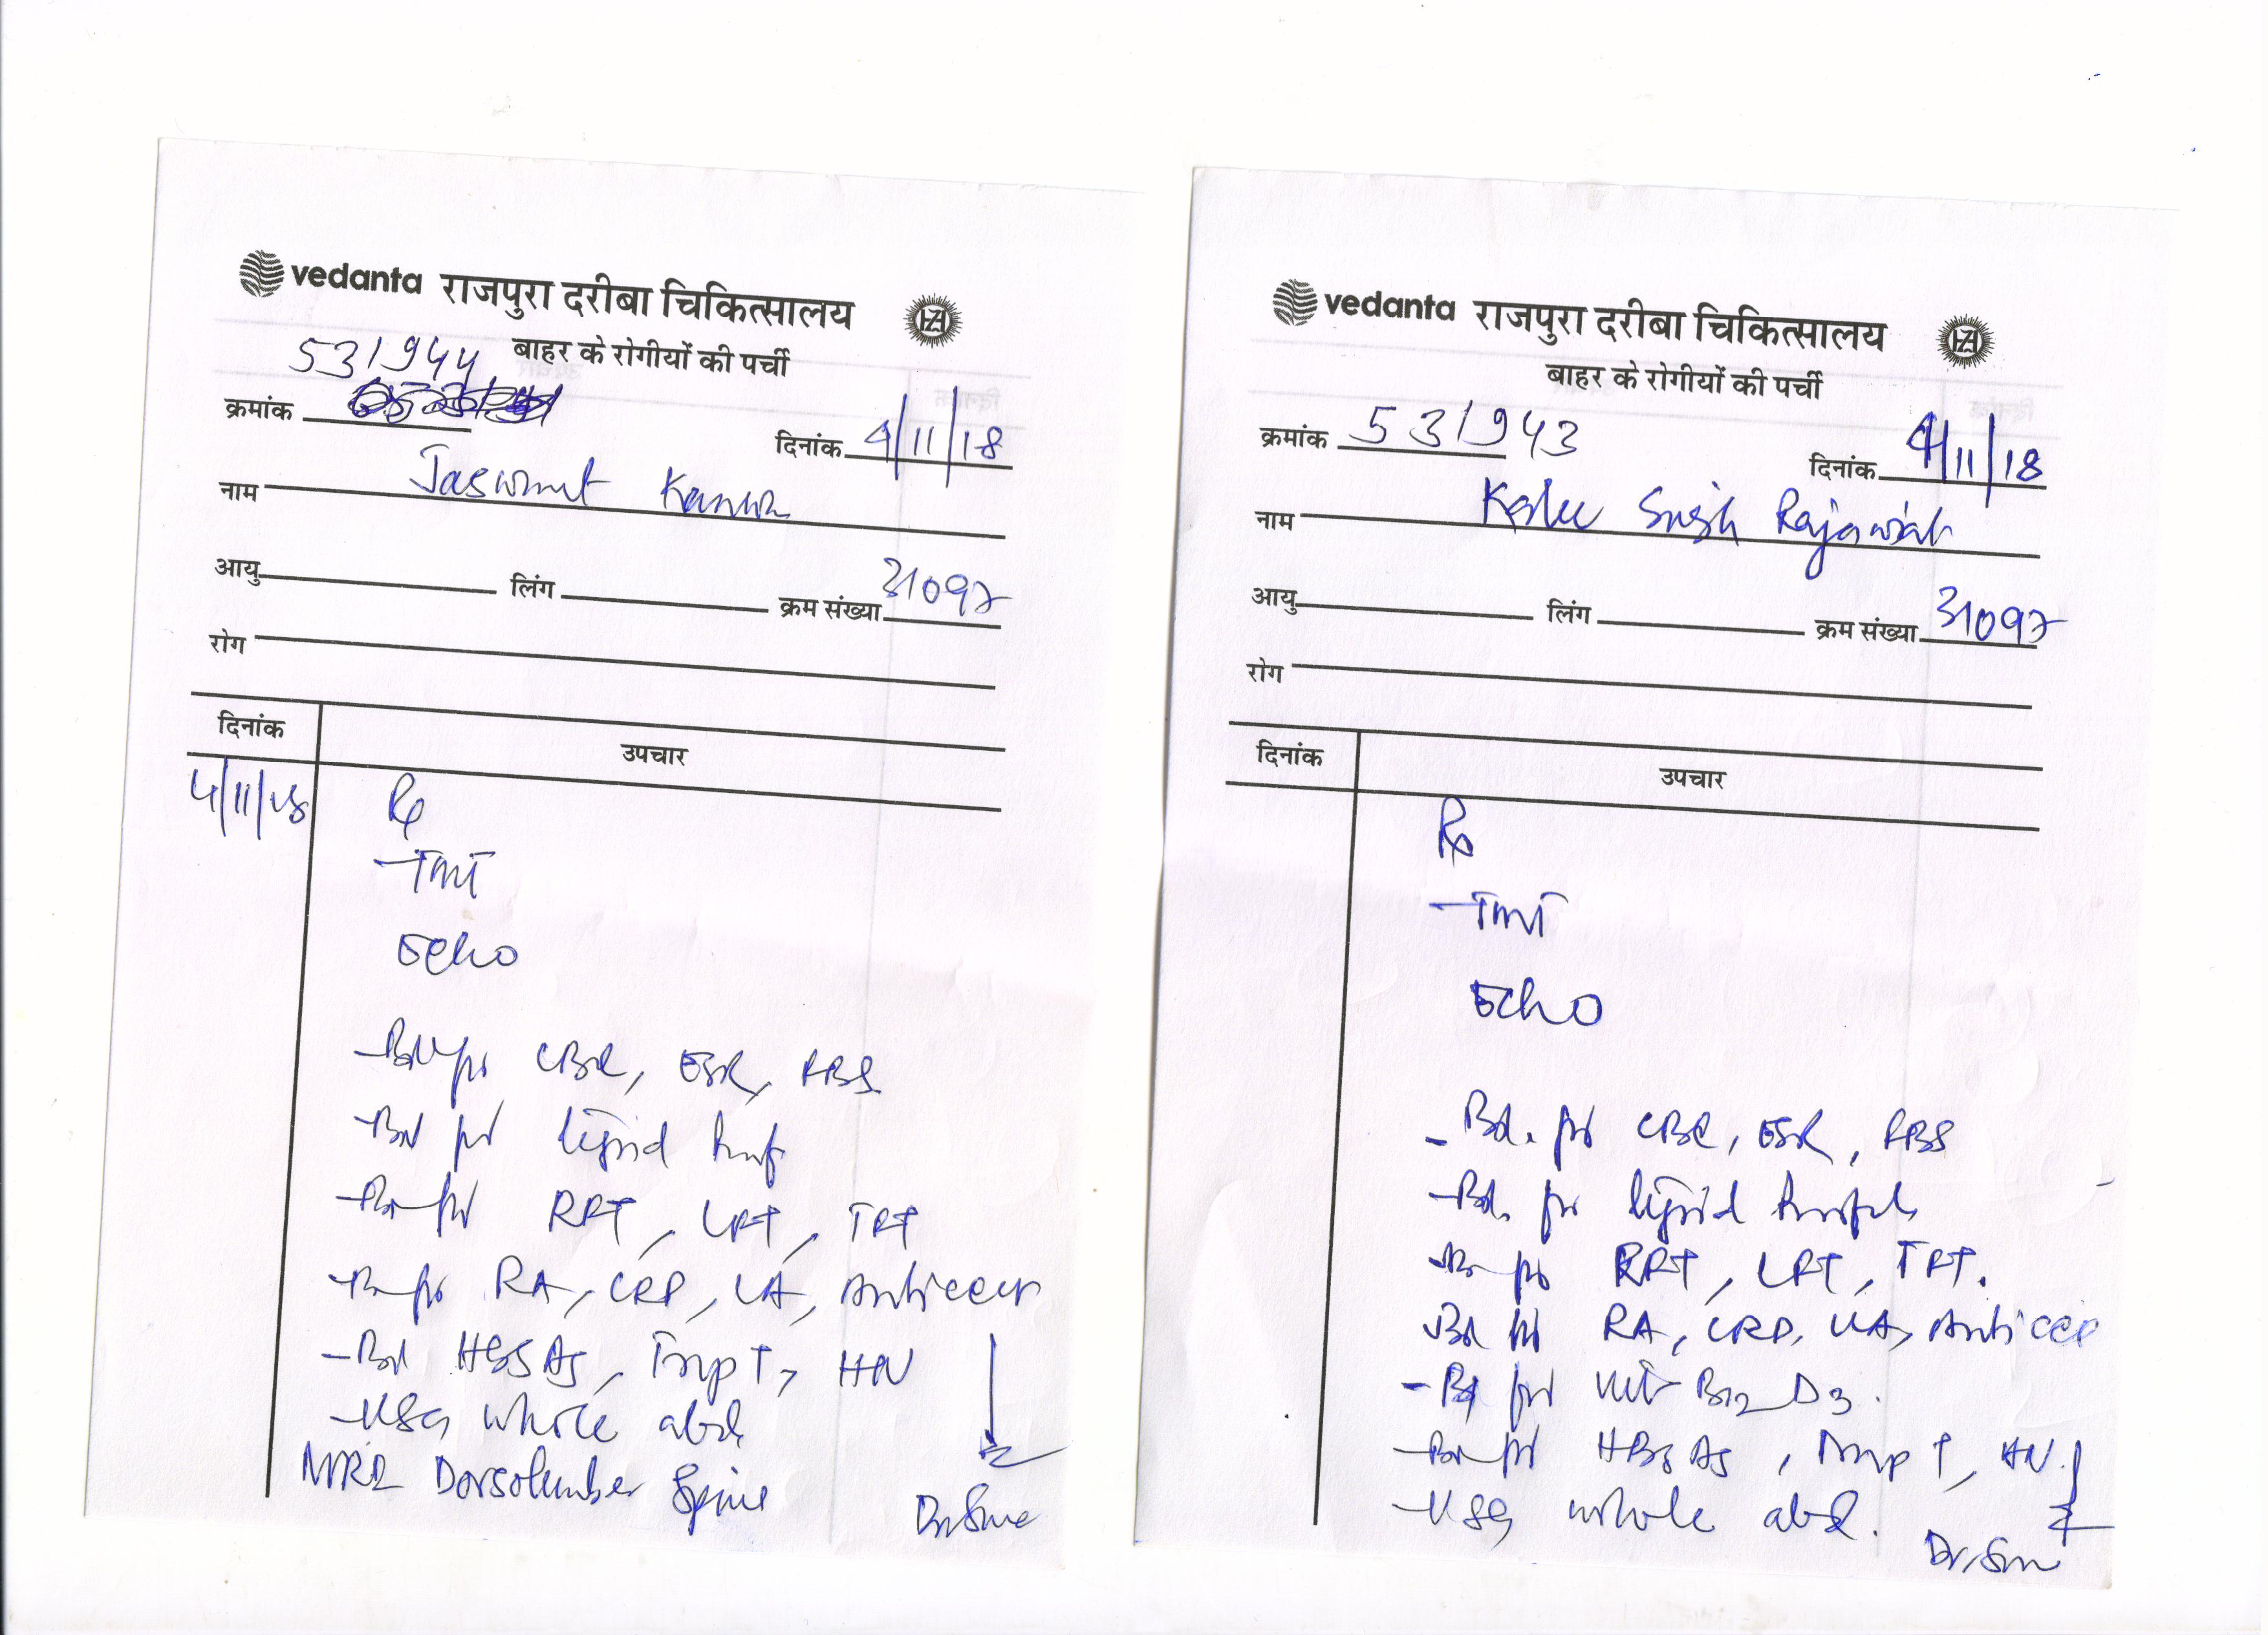 vedanta राजपुरा दरीबा चिकित्सालय
बाहर के रोगीयों की पर्ची
531944
क्रमांक
दिनांक 4/11/18
नाम Jaswant Kanwar
आयु लिंग क्रम संख्या 31097
रोग
दिनांक उपचार
4/11/18 Rx
- TMT
Echo
- Bd for CBC, ESR, FBS
- Bd for lipid
- Bd for RFT, LFT, TFT
- Bd for RA, CRP, UA, Anti CCP
- Bd HBSAg, Trop T, HIV
- USG whole abd.
MRI Dorsolumber Spine
vedanta राजपुरा दरीबा चिकित्सालय
बाहर के रोगीयों की पर्ची
क्रमांक 531943
दिनांक 4/11/18
नाम Singh Rajawat
आयु लिंग क्रम संख्या 31097
रोग
दिनांक उपचार
Rx
- TMT
Echo
- Bd. for CBC, ESR, FBS
- Bd. for lipid Profile
- Bd for RFT, LFT, TFT.
- Bd for RA, CRP, UA, Anti CCP
- Bd for Vit B12 D3.
- Bd for HBSAg, Trop T, HIV.
- USG whole abd.